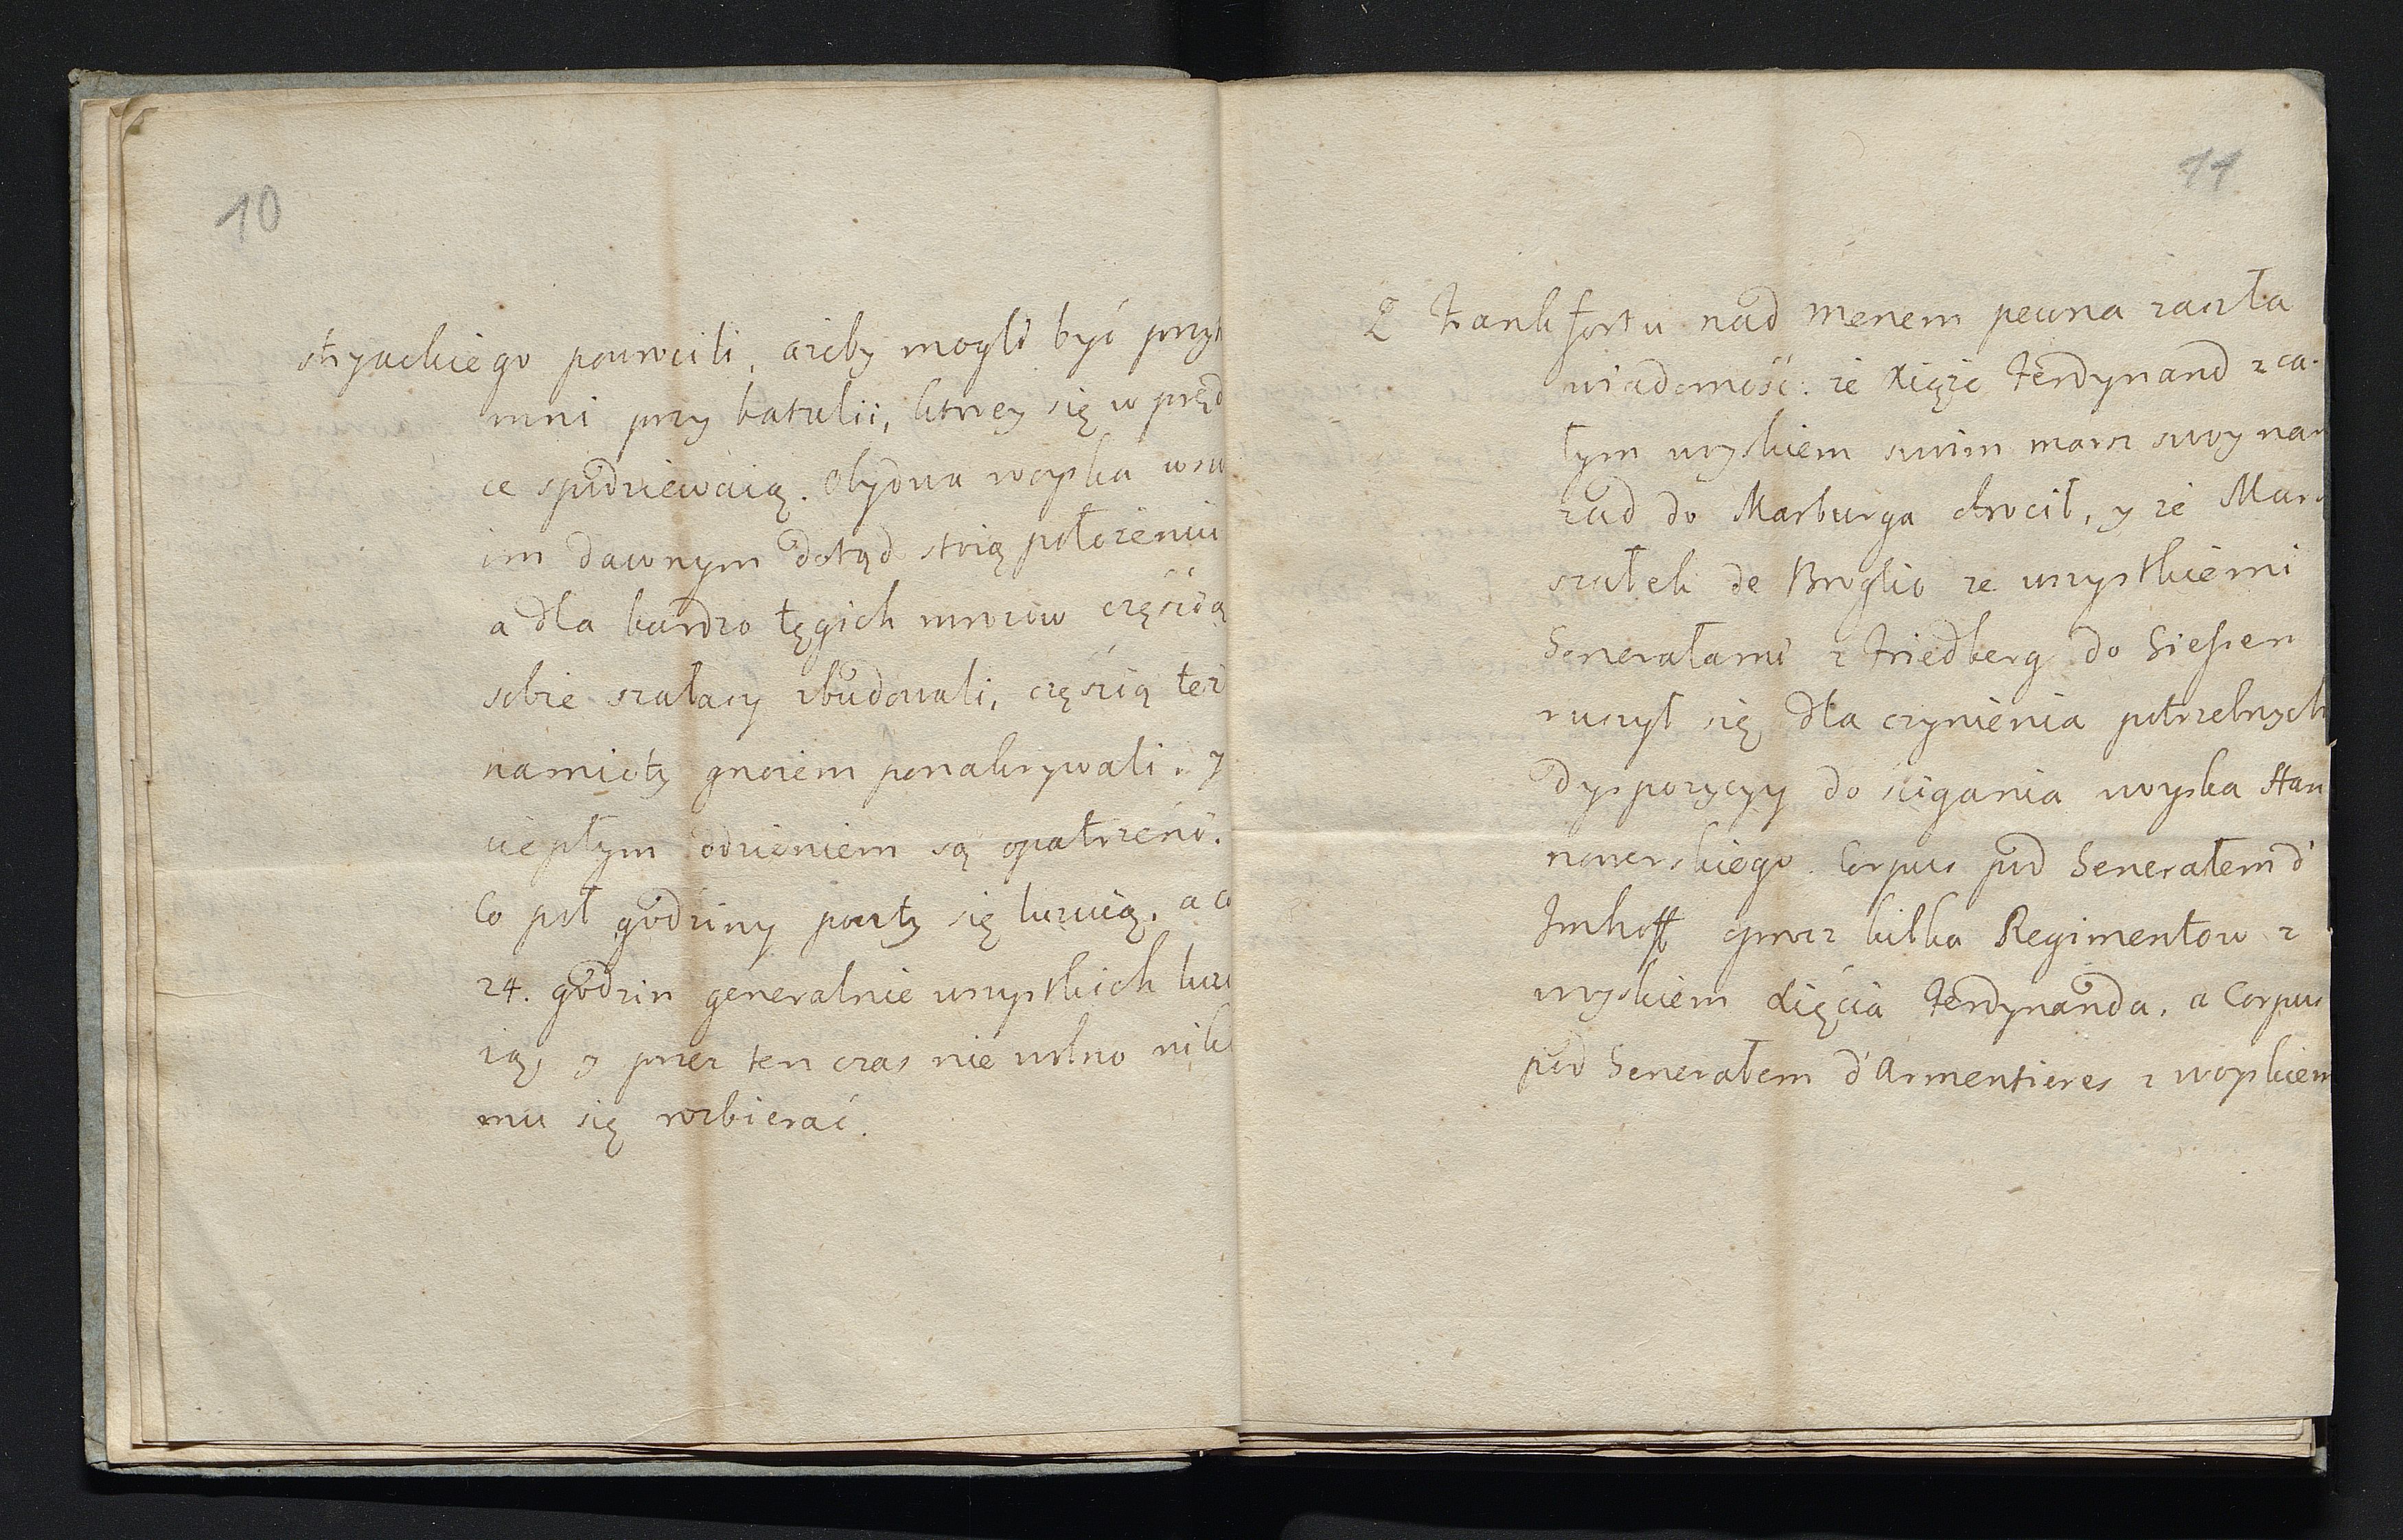 10
stryackiego powrocili, ażeby mogli być przyt
mni przy batalii, ktorey się w pręd
ce spodziewaią. Obydwa woyska w sw
im dawnym dotąd stoią położeniu
a dla bardzo tęgich mrozow częścią
sobie szałasy zbudowali, częścią też
namioty gnoiem ponakrywali. y
ciepłym odzieniem są opatrzeni.
Co puł godziny porty się luzuią. a co
24. godzin generalnie wszystkich luzu
ią, y przez ten czas nie wolno niko
mu się rozbierać.
11
Z Frankfortu nad Menem pewna zaszła
wiadomość: że Xiąże Ferdynand z ca-
łym woyskiem swoim marsz swoy na
zad do Marburga obrocił, y że Mar-
szałek de Broglio ze wszystkiemi
Generałami z Friedberg do Giessen
ruszył się dla czynienia potrzebnych
dyspozycyy do scigania woyska Han
nowerskiego. Corpus pod Generałem d'
Imhoff oprocz kilka Regimentow z
woyskiem Xięcia Ferdynanda, a Corpus
pod Generałem d'Armentieres z woyskiem